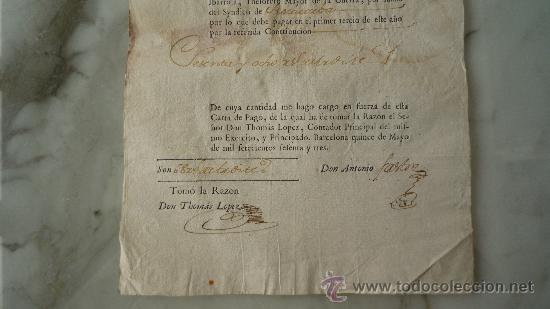 Ibarrola, Thesorero Mayor de la Guerra, por
Syndico de
por lo que debe pagar en el primer tercio de este año
por la referida Contribucion
Setenta y ocho
De cuya cantidad me hago cargo en fuerza de esta
Carta de Pago, de la qual ha de tomar la Razon el Se-
ñor Don Thomás Lopez, Contador Principal del mis-
mo Exercito, y Principado. Barcelona quince de Mayo
de mil setecientos setenta y tres.
Son
Don Antonio
Tomó la Razon
Don Thomás Lopez
todocoleccion
www.todocoleccion.net